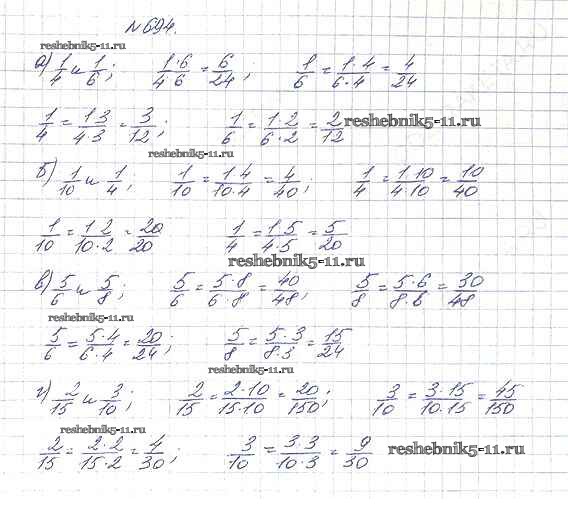 № 694.
reshebnik5-11.ru
а) 1/4 и 1/6; 1·6/4·6 = 6/24; 1/6 = 1·4/6·4 = 4/24
1/4 = 1·3/4·3 = 3/12; 1/6 = 1·2/6·2 = 2/12 reshebnik5-11.ru
reshebnik5-11.ru
б) 1/10 и 1/4; 1/10 = 1·4/10·4 = 4/40; 1/4 = 1·10/4·10 = 10/40
1/10 = 1·2/10·2 = 20/20 1/4 = 1·5/4·5 = 5/20
reshebnik5-11.ru
в) 5/6 и 5/8; 5/6 = 5·8/6·8 = 40/48; 5/8 = 5·6/8·6 = 30/48
reshebnik5-11.ru
5/6 = 5·4/6·4 = 20/24; 5/8 = 5·3/8·3 = 15/24
reshebnik5-11.ru
г) 2/15 и 3/10; 2/15 = 2·10/15·10 = 20/150; 3/10 = 3·15/10·15 = 45/150
reshebnik5-11.ru
2/15 = 2·2/15·2 = 4/30; 3/10 = 3·3/10·3 = 9/30 reshebnik5-11.ru